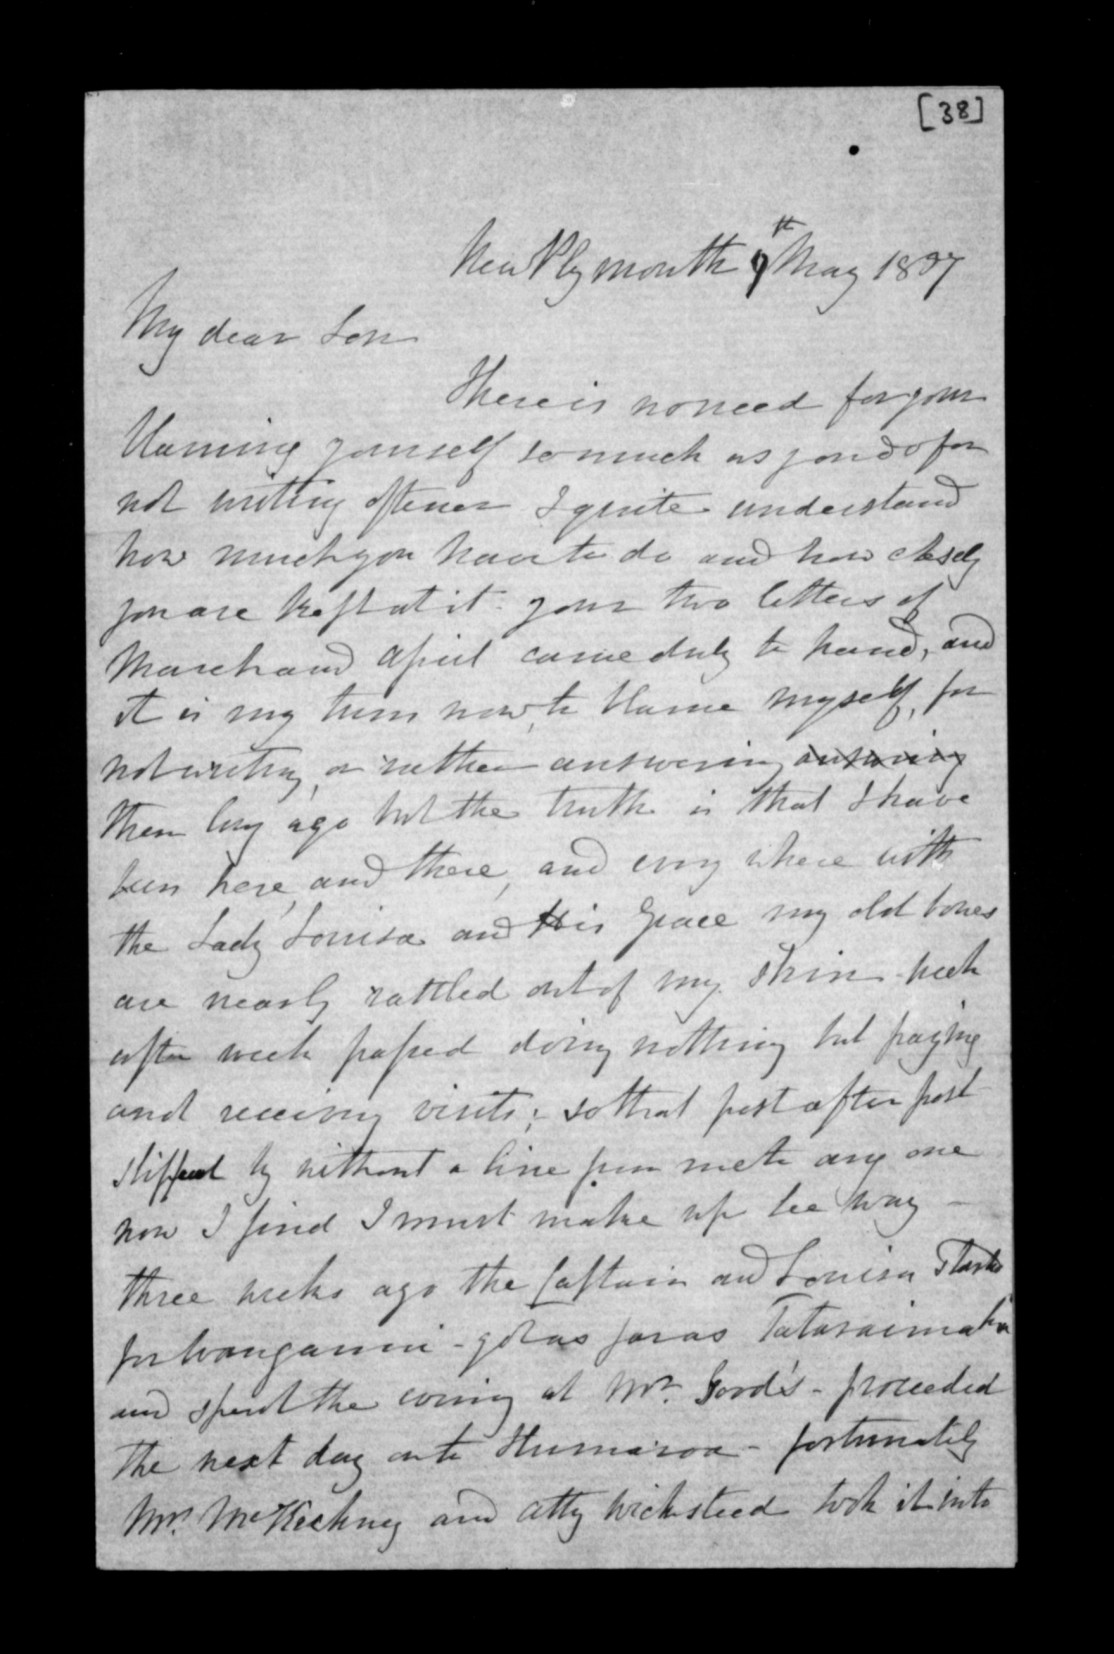 [38]
New Plymouth 9th May 1857
My dear Son
There is no need for your
blaming yourself so much as you do for
not writing oftener I quite understand
how much you have to do and how closely
you are kept at it. your two letters of
March and April came duly to hand, and
it is my turn now, to blame myself, for
not writing, or rather answering answering
them long ago but the truth is that I have
been here, and there, and every where with
the Lady Louisa and His Grace my old bones
are nearly rattled out of my skin - week
after week passed doing nothing but paying
and receiving visits; so that post after post
slipped by without a line from me to any one
now I find I must make up lee way -
three weeks ago the Captain and Louisa
for Wanganui - got as far as Tataraimaka
and spent the evening at Mr. Good's - proceeded
the next day on to - fortunately
Mr. McKechney and Atty Wicksteed took it into